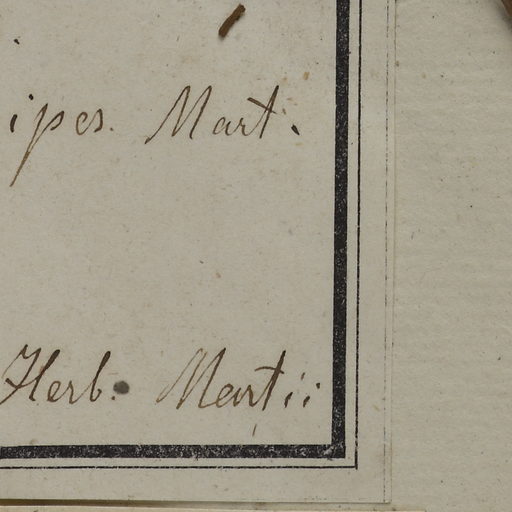 ipes. Mart.
Herb. Martii